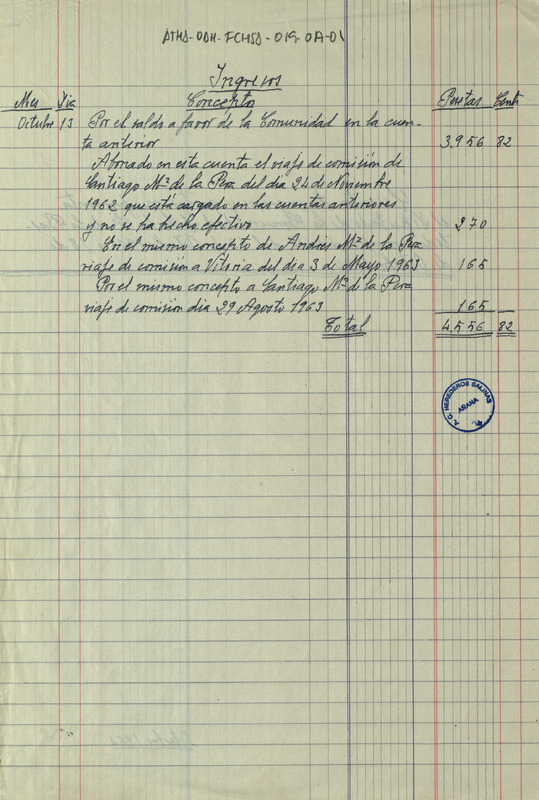 ATHA-DAH-FCHSD-019-0A-01
Ingresos
Mes Dia Concepto Pesetas Cents
Octubre 13 Por el saldo a favor de la Comunidad en la cuen-
ta anterior 3.956 82
Abonado en esta cuenta el viaje de comisión de
Santiago Mª de la Pera del dia 24 de Noviembre
1962 que está cargado en las cuentas anteriores
y no se ha hecho efectivo 270
En el mismo concepto de Andrés Mª de la Pera
viaje de comisión a Vitoria del dia 3 de Mayo 1963 165
Por el mismo concepto a Santiago Mª de la Pera
viaje de comision dia 29 Agosto 1963 165
Total 4.556 82
HEREDEROS SALINAS
AÑANA